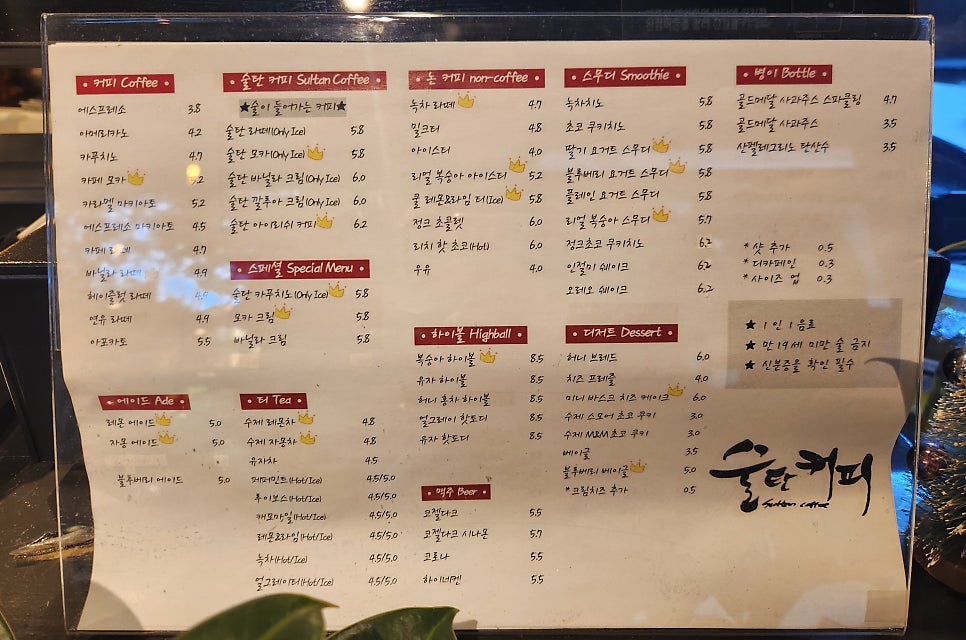 커피 Coffee
에스프레소 3.8
아메리카노 4.2
카푸치노 4.7
카페 모카 5.2
카라멜 마키아토 5.2
에스프레소 마키아토 4.5
카페 라떼 4.7
바닐라 라떼 4.9
헤이즐럿 라떼 4.9
연유 라떼 4.9
아포카토 5.5
에이드 Ade
레몬 에이드 5.0
자몽 에이드 5.0
블루베리 에이드 5.0
술탄 커피 Sultan Coffee
★술이 들어가는 커피★
술탄 라떼(Only Ice) 5.8
술탄 모카(Only Ice) 5.8
술탄 바닐라 크림(Only Ice) 6.0
술탄 깔루아 크림(Only Ice) 6.0
술탄 아이리쉬 커피 6.2
스페셜 Special Menu
술탄 카푸치노(Only Ice) 5.8
모카 크림 5.8
바닐라 크림 5.8
더 Tea
수제 레몬차 4.8
수제 자몽차 4.8
유자차 4.5
페퍼민트(Hot/Ice) 4.5/5.0
루이보스(Hot/Ice) 4.5/5.0
캐모마일(Hot/Ice) 4.5/5.0
레몬&라임(Hot/Ice) 4.5/5.0
녹차(Hot/Ice) 4.5/5.0
얼그레이티(Hot/Ice) 4.5/5.0
논 커피 non-coffee
녹차 라떼 4.7
밀크티 4.8
아이스티 4.0
리얼 복숭아 아이스티 5.2
쿨 레몬&라임 티(Ice) 5.8
정크 초콜렛 6.0
리치 핫 초코(Hot) 6.0
우유 4.0
하이볼 Highball
복숭아 하이볼 8.5
유자 하이볼 8.5
허니 홍차 하이볼 8.5
얼그레이 핫토디 8.5
유자 핫토디 8.5
맥주 Beer
코젤다크 5.5
코젤다크 시나몬 5.7
코로나 5.5
하이네켄 5.5
스무디 Smoothie
녹차치노 5.8
초코 쿠키치노 5.8
딸기 요거트 스무디 5.8
블루베리 요거트 스무디 5.8
플레인 요거트 스무디 5.8
리얼 복숭아 스무디 5.7
정크초코 쿠키치노 6.2
인절미 쉐이크 6.2
오레오 쉐이크 6.2
디저트 Dessert
허니 브레드 6.0
치즈 프레즐 4.0
미니 바스크 치즈 케이크 6.0
수제 스모어 초코 쿠키 3.0
수제 M&M 초코 쿠키 3.0
베이글 3.5
블루베리 베이글 5.0
*크림치즈 추가 0.5
병이 Bottle
골드메달 사과주스 스파클링 4.7
골드메달 사과주스 3.5
산펠레그리노 탄산수 3.5
* 샷 추가 0.5
* 디카페인 0.3
* 사이즈 업 0.3
★ 1인 1음료
★ 만19세 미만 술 금지
★ 신분증을 확인 필수
술탄커피
Sultan coffee